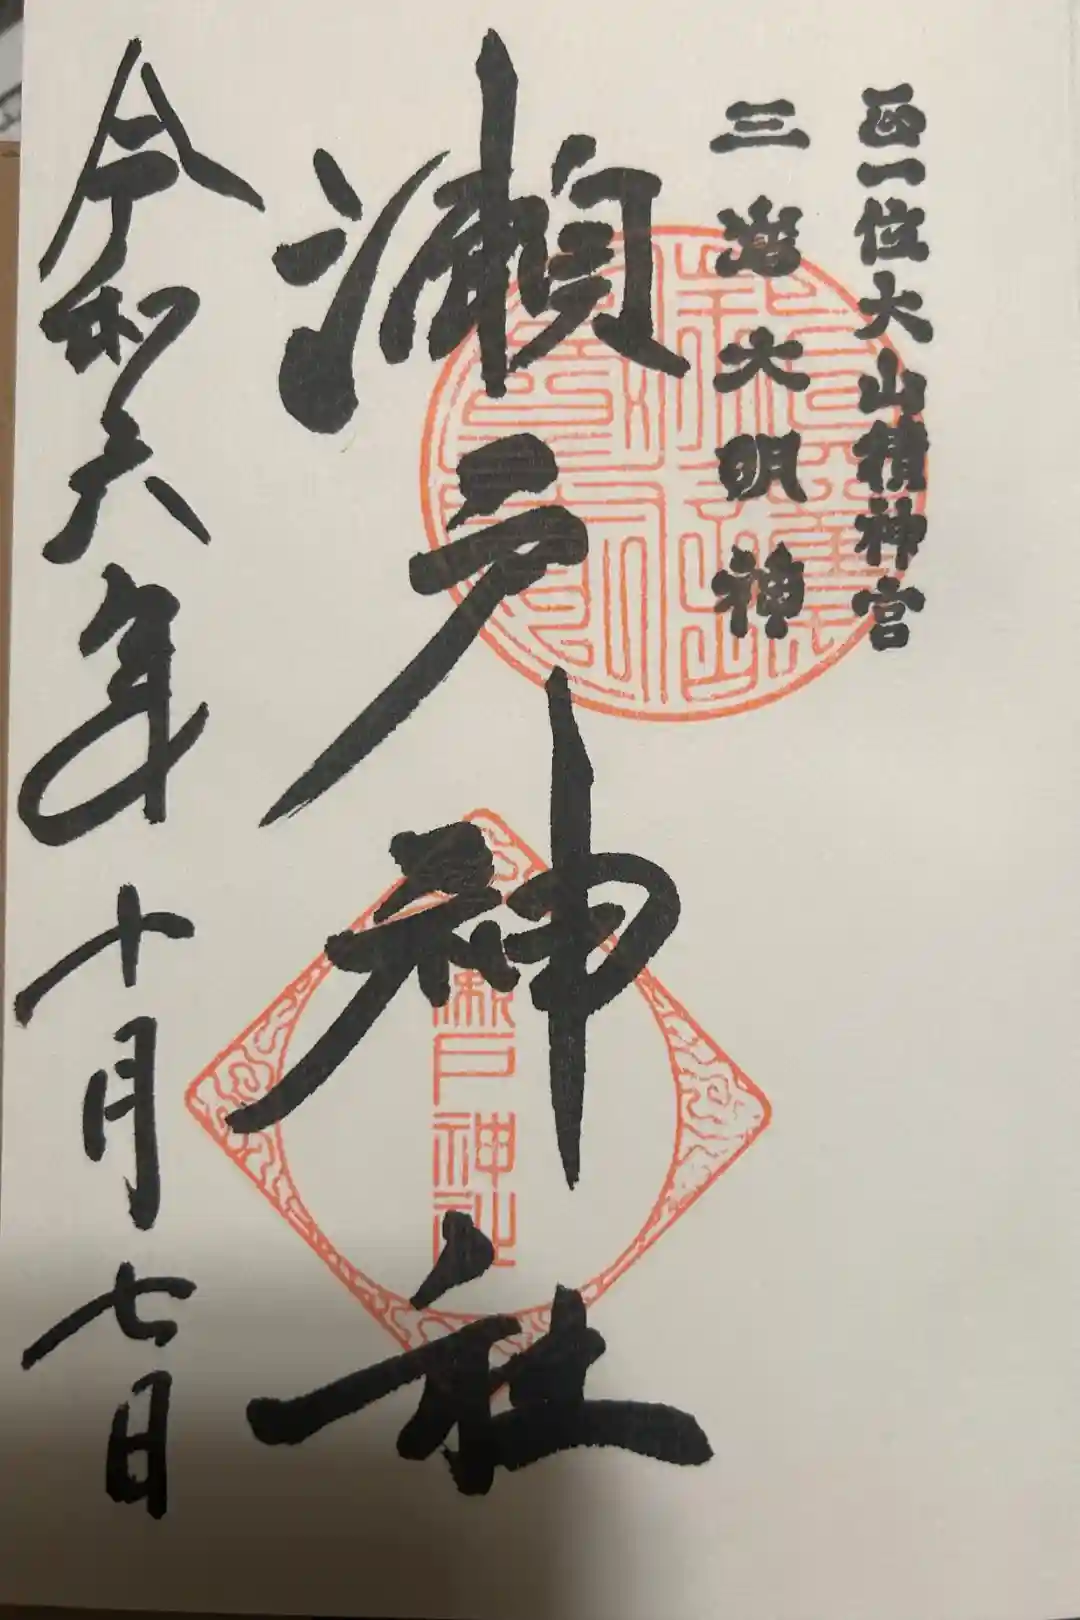 正一位大山積神宮
三嶋大明神
瀬戸神社
瀬戸神社
令和六年十月七日